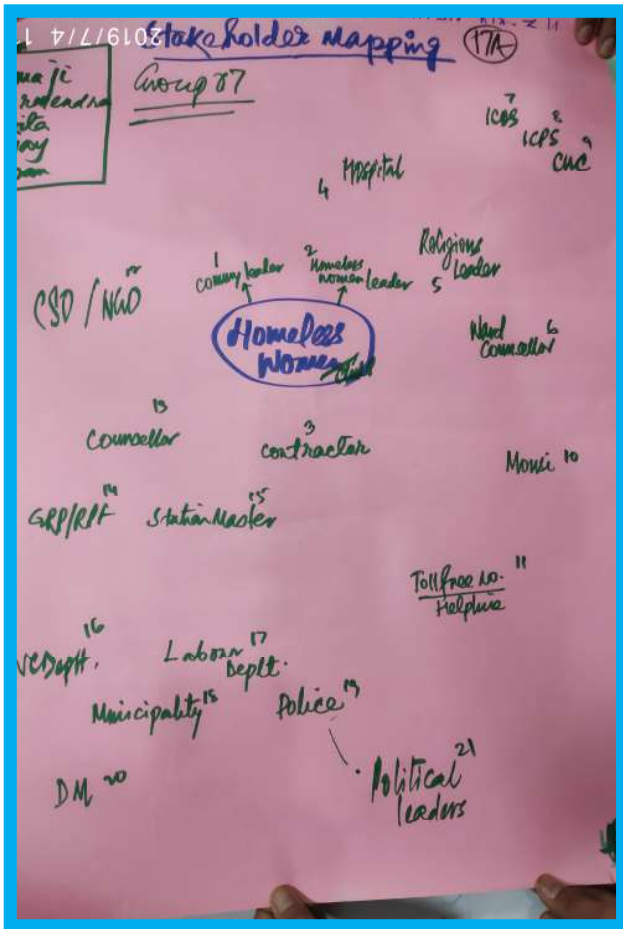 2019/7/4 11
Stakeholder Mapping
17A
Group 07
ma ji
ita
7
ICDS
8
ICPS
9
CWC
Hospital
4
1
2
Homeless
women leader
Religious
Leader
5
12
CSO / NGO
Homeless
Women
Ward 6
Counsellor
13
Counsellor
3
contractor
Mousi 10
14
GRP/RPF
15
Station Master
11
Toll free no.
Helpline
16
Deptt.
Labour 17
Deptt.
Municipality 18
Police 19
DM 20
21
Political
leaders